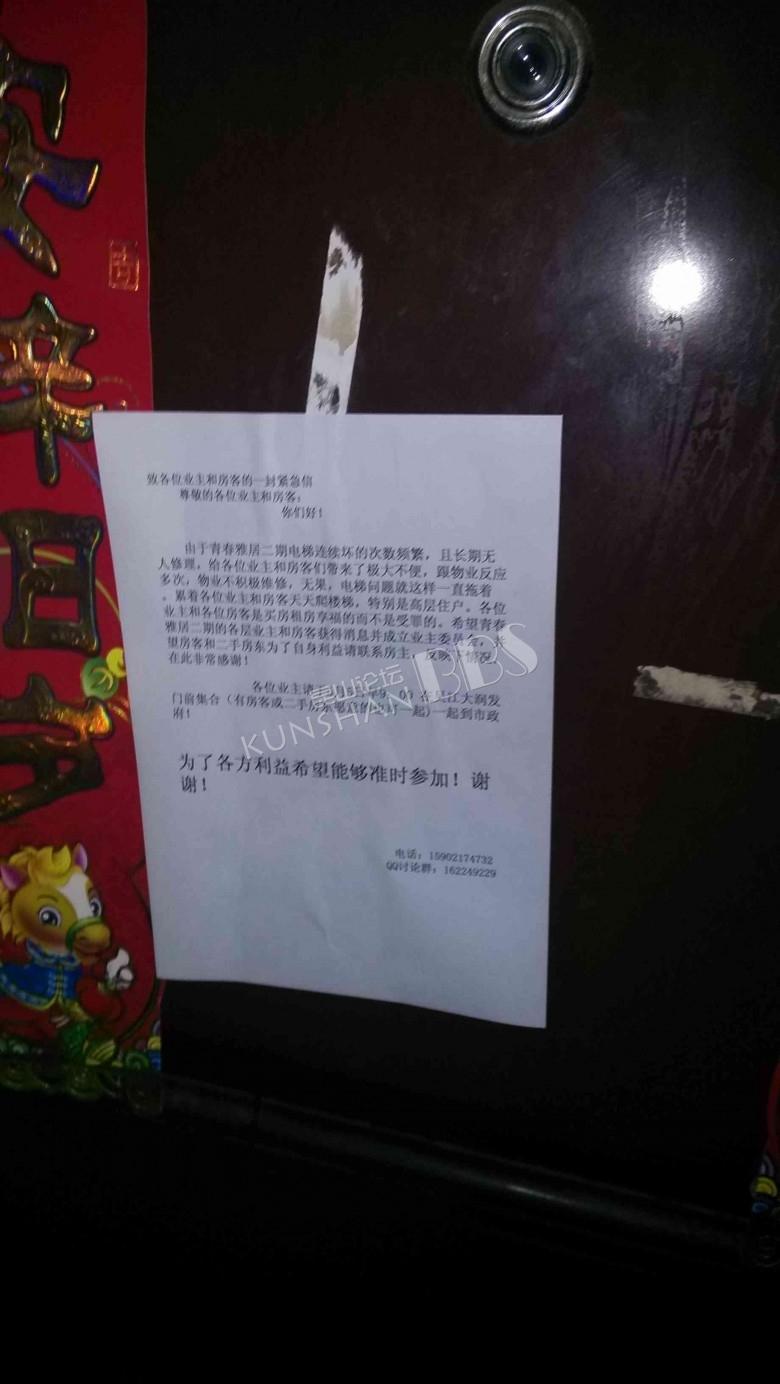 致各位业主和房客的一封紧急信
尊敬的各位业主和房客：
你们好！
由于青春雅居二期电梯连续坏的次数频繁，且长期无
人修理，给各位业主和房客们带来了极大不便，跟物业反应
多次，物业不积极维修，无果，电梯问题就这样一直拖着
。累着各位业主和房客天天爬楼梯，特别是高层住户。各位
业主和各位房客是买房租房享福的而不是受罪的。希望青春
雅居二期的各层业主和房客获得消息并成立业主委员会，并
望房客和二手房东为了自身利益请联系房主，反映下情况，
在此非常感谢！
各位业主请 在吴江大润发
门前集合（有房客或二手房东愿意的 一起）一起到市政
府！
为了各方利益希望能够准时参加！谢
谢！
电话：15902174732
QQ讨论群：162249229
昆山论坛
KUNSHAN BBS